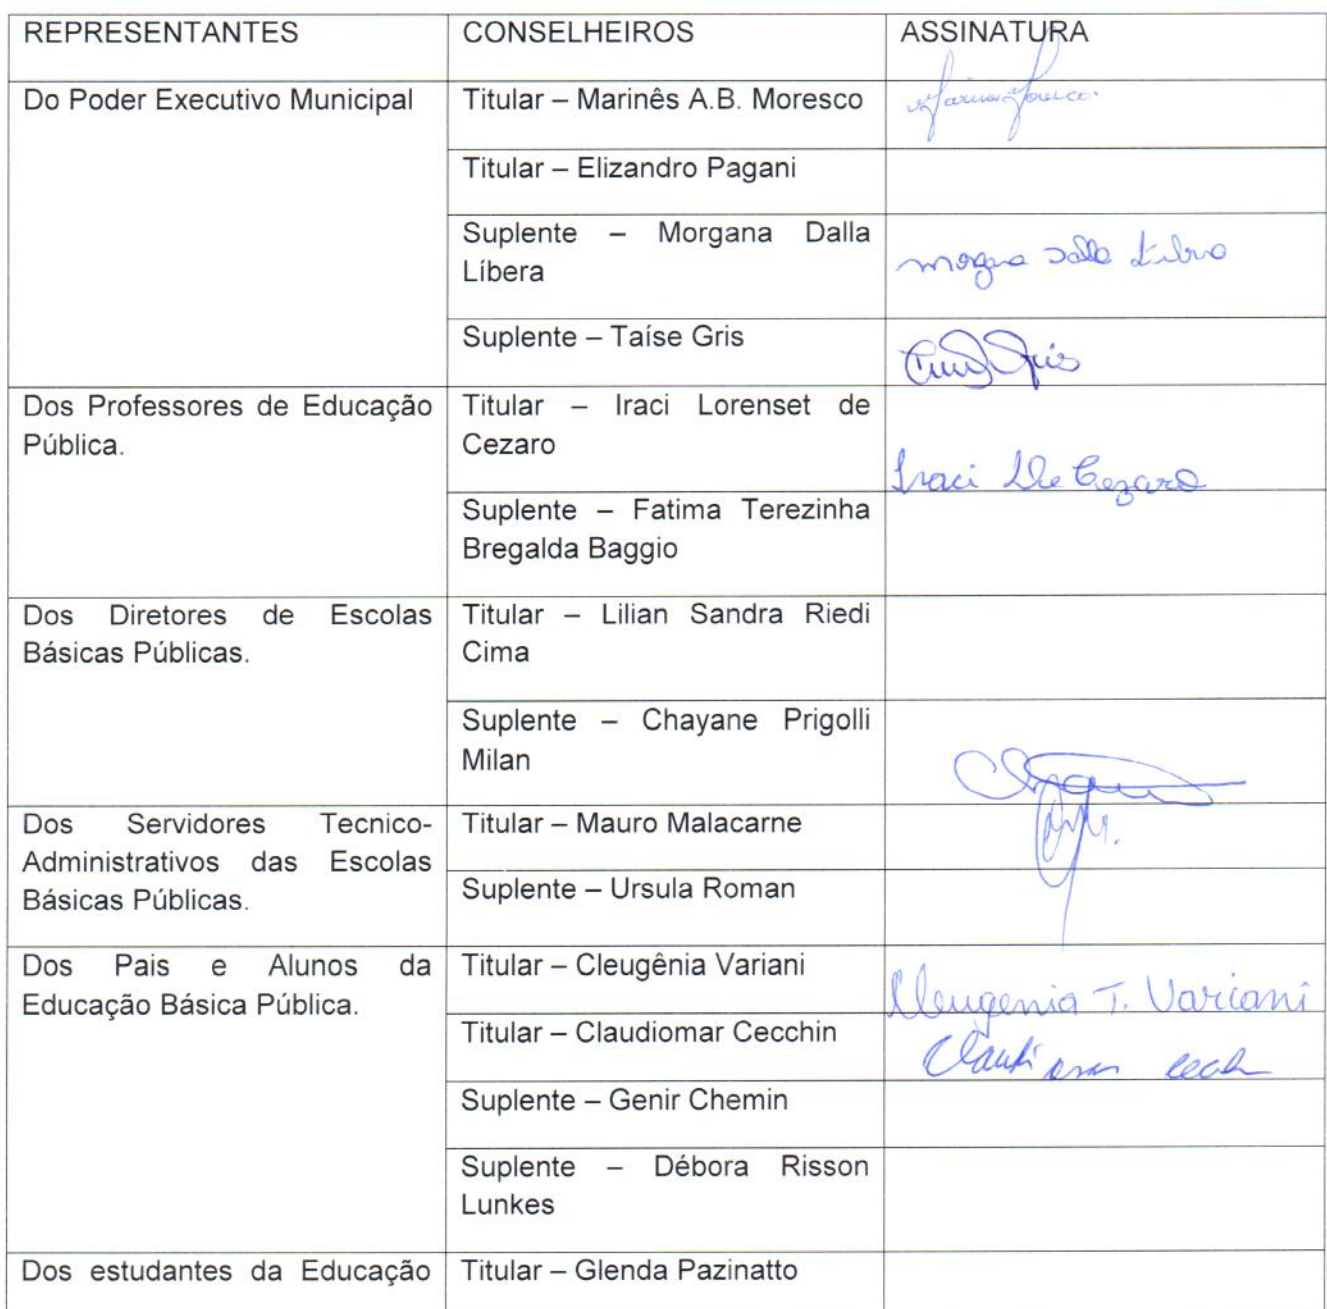 REPRESENTANTES CONSELHEIROS ASSINATURA
Do Poder Executivo Municipal Titular – Marinês A.B. Moresco
Titular – Elizandro Pagani
Suplente – Morgana Dalla
Líbera
Morgana Dalla Líbera
Suplente – Taíse Gris
Gris
Dos Professores de Educação
Pública.
Titular – Iraci Lorenset de
Cezaro
Iraci De Cezaro
Suplente – Fatima Terezinha
Bregalda Baggio
Dos Diretores de Escolas
Básicas Públicas.
Titular – Lilian Sandra Riedi
Cima
Suplente – Chayane Prigolli
Milan
Dos Servidores Tecnico-
Administrativos das Escolas
Básicas Públicas.
Titular – Mauro Malacarne
Suplente – Ursula Roman
Dos Pais e Alunos da
Educação Básica Pública.
Titular – Cleugênia Variani
Cleugenia T. Variani
Titular – Claudiomar Cecchin
Suplente – Genir Chemin
Suplente – Débora Risson
Lunkes
Dos estudantes da Educação Titular – Glenda Pazinatto